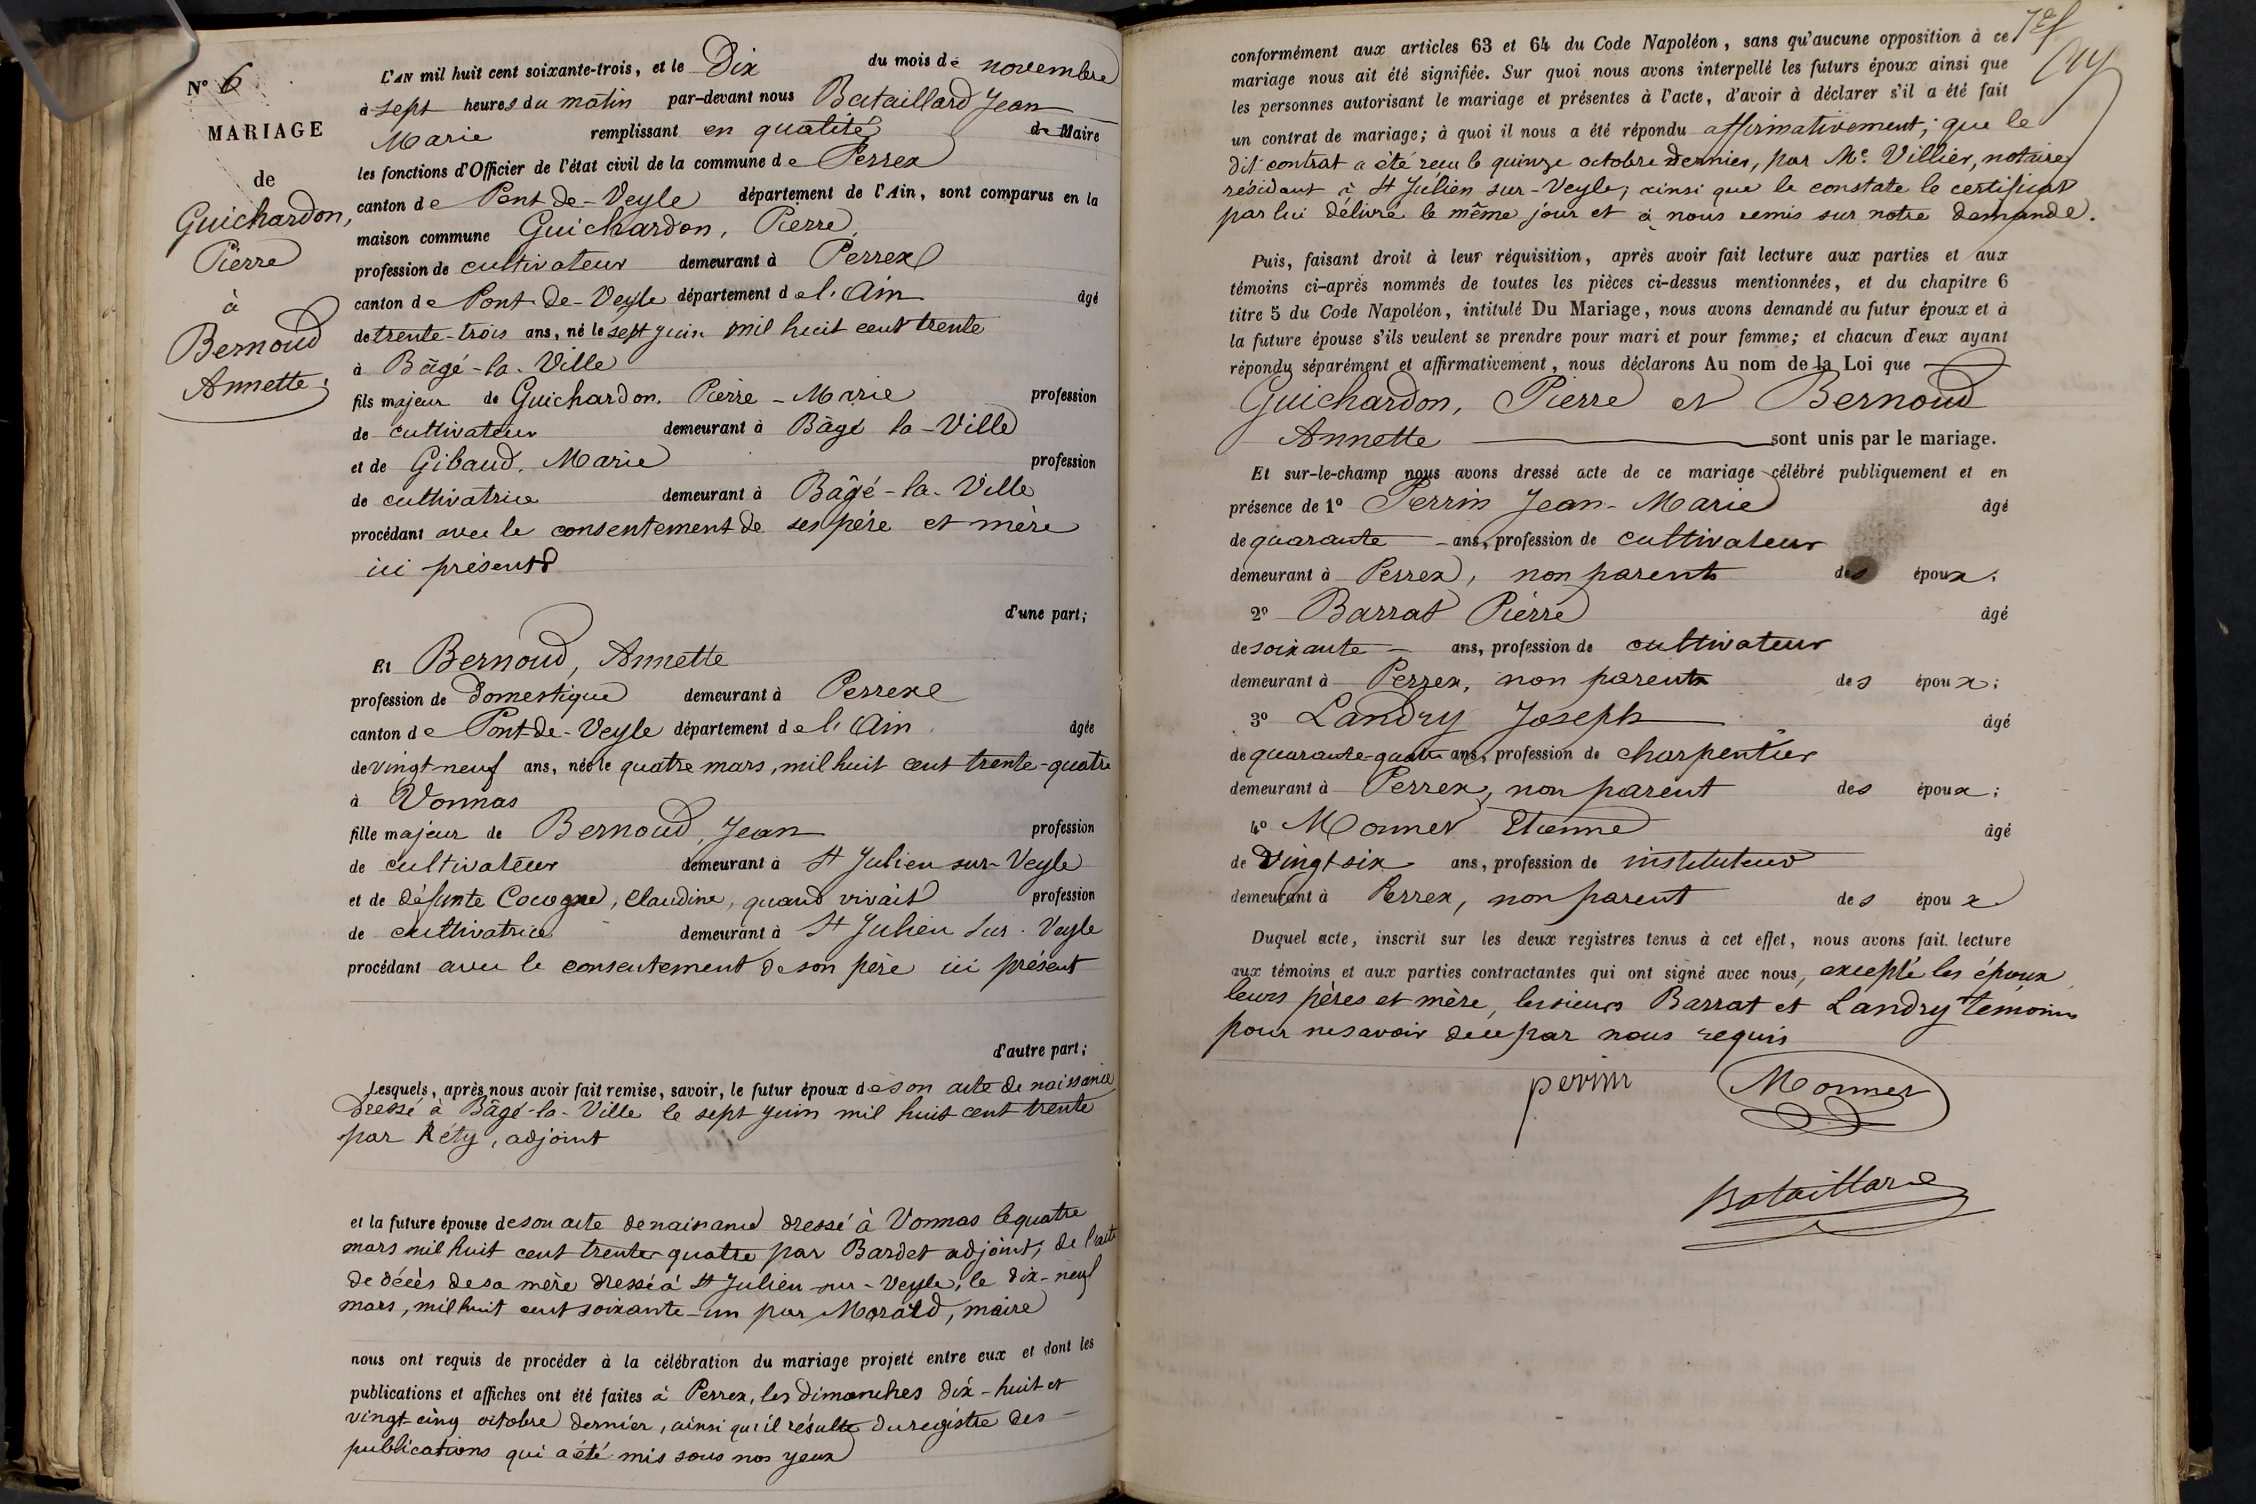 N° 6
MARIAGE
de
Guichardon,
Pierre
à
Bernoud
Annette.
L'AN mil huit cent soixante-trois, et le Dix du mois de novembre
à sept heures du matin par-devant nous Bataillard Jean
Marie remplissant en qualité de Maire
les fonctions d'Officier de l'état civil de la commune de Perrex
canton de Pont-de-Veyle département de l'Ain, sont comparus en la
maison commune Guichardon, Pierre,
profession de cultivateur demeurant à Perrex
canton de Pont-de-Veyle département de l'Ain âgé
de trente-trois ans, né le sept juin mil huit cent trente
à Bâgé-la-Ville
fils majeur de Guichardon, Pierre-Marie profession
de cultivateur demeurant à Bâgé la-Ville
et de Gibaud, Marie profession
de cultivatrice demeurant à Bâgé-la-Ville
procédant avec le consentement de ses père et mère
ici présents
d'une part;
Et Bernoud, Annette
profession de domestique demeurant à Perrex
canton de Pont-de-Veyle département de l'Ain âgée
de vingt neuf ans, née le quatre mars, mil huit cent trente-quatre
à Vonnas
fille majeur de Bernoud, Jean profession
de cultivateur demeurant à St Julien sur-Veyle
et de défunte Cocogne, Claudine, quand vivait profession
de cultivatrice demeurant à St Julien sur-Veyle
procédant avec le consentement de son père ici présent
d'autre part;
Lesquels, après nous avoir fait remise, savoir, le futur époux de son acte de naissance
dressé à Bâgé-la-Ville le sept juin mil huit cent trente
par Réty, adjoint
et la future épouse de son acte de naissance dressé à Vonnas le quatre
mars mil huit cent trente-quatre par Bardet adjoint; de l'acte
de décès de sa mère dressé à St Julien-sur-Veyle, le dix-neuf
mars, mil huit cent soixante-un par Morard, maire
nous ont requis de procéder à la célébration du mariage projeté entre eux et dont les
publications et affiches ont été faites à Perrex, les dimanches dix-huit et
vingt-cinq octobre dernier, ainsi qu'il résulte du registre des
publications qui a été mis sous nos yeux
conformément aux articles 63 et 64 du Code Napoléon, sans qu'aucune opposition à ce
mariage nous ait été signifiée. Sur quoi nous avons interpellé les futurs époux ainsi que
les personnes autorisant le mariage et présentes à l'acte, d'avoir à déclarer s'il a été fait
un contrat de mariage; à quoi il nous a été répondu affirmativement; que le
dit contrat a été reçu le quinze octobre dernier, par Me. Villier, notaire
résidant à St Julien sur-Veyle, ainsi que le constate le certificat
par lui délivré le même jour et à nous remis sur notre demande.
Puis, faisant droit à leur réquisition, après avoir fait lecture aux parties et aux
témoins ci-après nommés de toutes les pièces ci-dessus mentionnées, et du chapitre 6
titre 5 du Code Napoléon, intitulé Du Mariage, nous avons demandé au futur époux et à
la future épouse s'ils veulent se prendre pour mari et pour femme; et chacun d'eux ayant
répondu séparément et affirmativement, nous déclarons Au nom de la Loi que
Guichardon, Pierre et Bernoud
Annette sont unis par le mariage.
Et sur-le-champ nous avons dressé acte de ce mariage célébré publiquement et en
présence de 1° Perrin Jean-Marie âgé
de quarante ans, profession de cultivateur
demeurant à Perrex, non parent des époux;
2° Barrat Pierre âgé
de soixante ans, profession de cultivateur
demeurant à Perrex, non parent des époux;
3° Landry Joseph âgé
de quarante-quatre ans, profession de charpentier
demeurant à Perrex, non parent des époux;
4° Monner Etienne âgé
de vingt six ans, profession de instituteur
demeurant à Perrex, non parent des époux
Duquel acte, inscrit sur les deux registres tenus à cet effet, nous avons fait lecture
aux témoins et aux parties contractantes qui ont signé avec nous, excepté les époux
leurs pères et mère, les sieurs Barrat et Landry témoins
pour ne savoir de ce par nous requis
perrin Monner
Bataillard